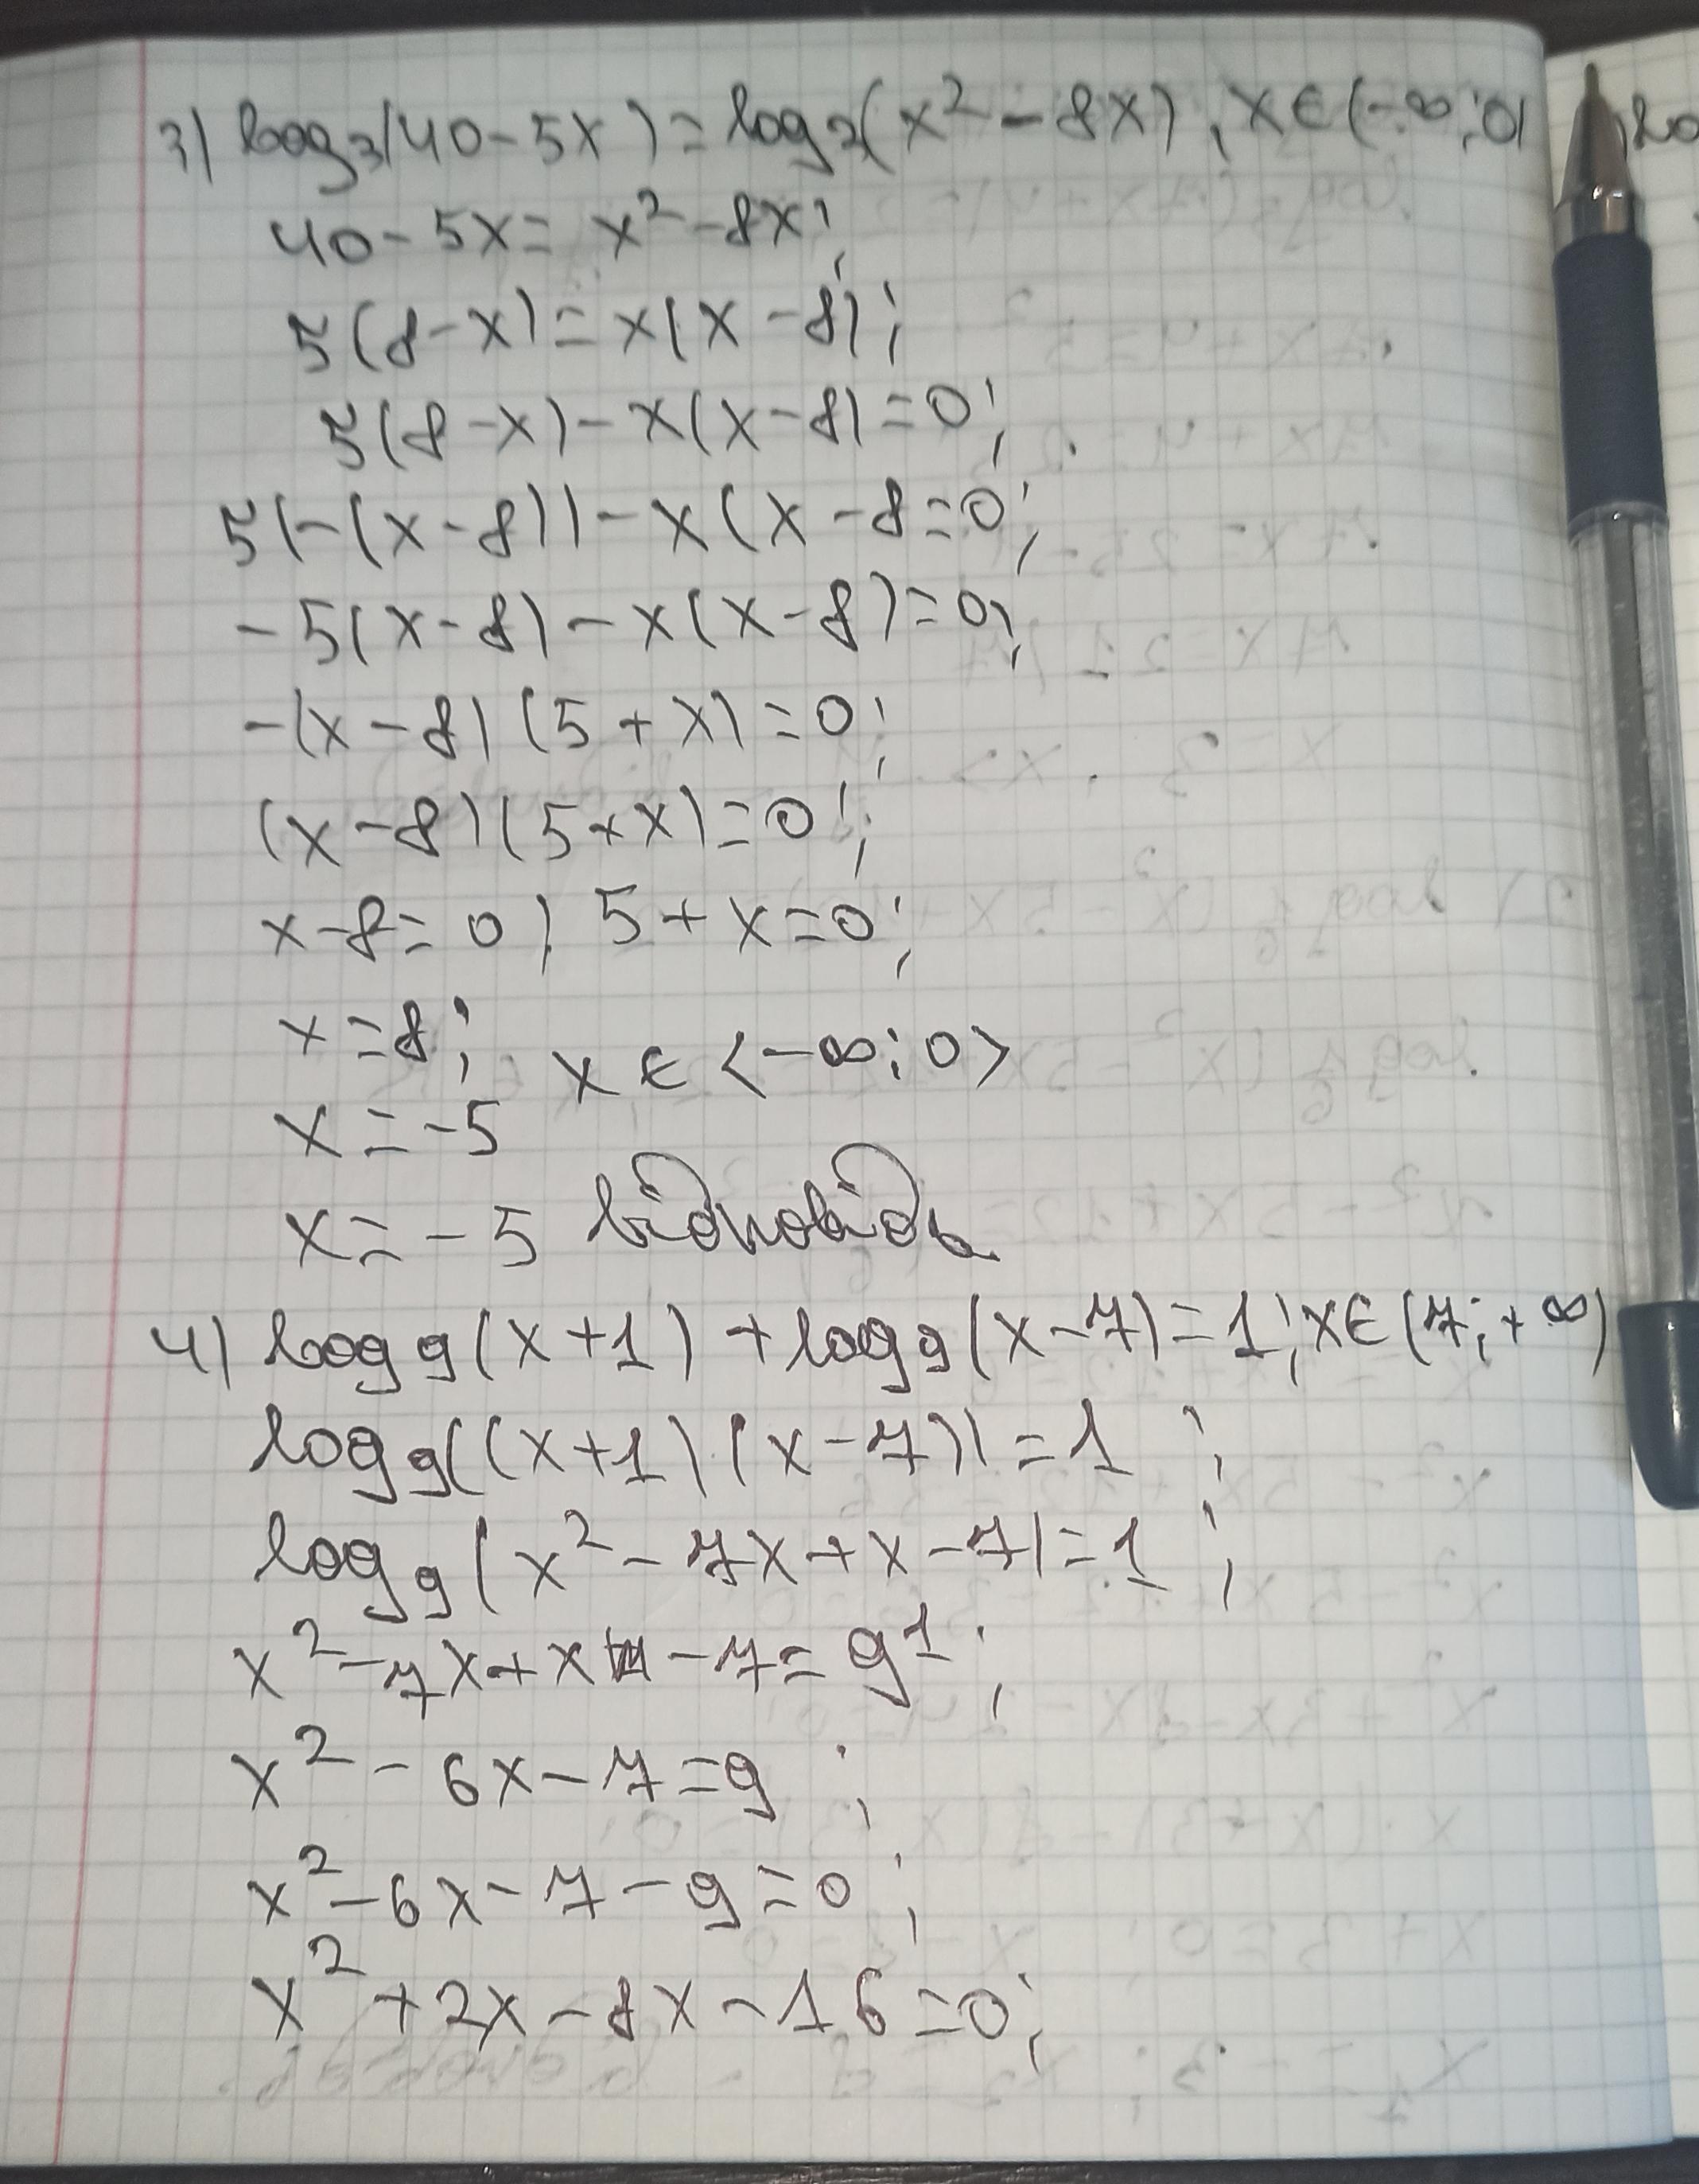 3) log₃(40-5x)=log₃(x²-8x), x∈(-∞;0)
40-5x=x²-8x;
5(8-x)=x(x-8);
5(8-x)-x(x-8)=0;
5(-(x-8))-x(x-8=0;
-5(x-8)-x(x-8)=0;
-(x-8)(5+x)=0;
(x-8)(5+x)=0;
x-8=0; 5+x=0;
x=8;
x∈<-∞;0>
x=-5
x=-5 відповідь
4) log₉(x+1)+log₉(x-7)=1; x∈(7;+∞)
log₉((x+1)·(x-7))=1;
log₉(x²-7x+x-7)=1;
x²-7x+x-7=9¹;
x²-6x-7=9;
x²-6x-7-9=0;
x²+2x-8x-16=0;